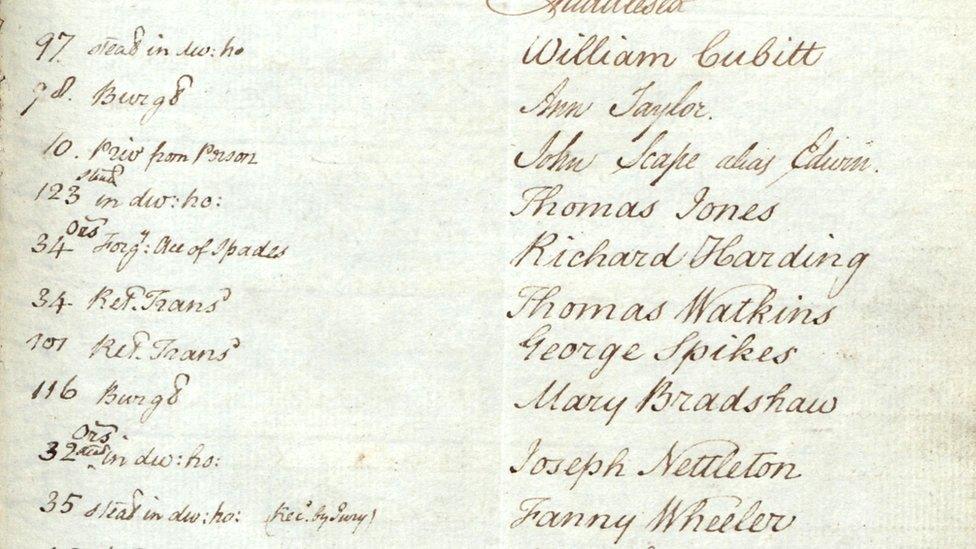 Middlesex
97. Stealg in dw: ho William Cubitt
98. Burgy Ann Taylor.
10. Priv from Person John Scape alias Edwin.
123 Stealg in dw: ho: Thomas Jones
34 Ors Forgy: Ace of Spades Richard Harding
34 Ret. Trans Thomas Watkins
101 Ret. Trans George Spikes
116 Burgy Mary Bradshaw
32 Ors in dw: ho: Joseph Nettleton
35 Stealg in dw: ho: (Rec. by Jury) Fanny Wheeler